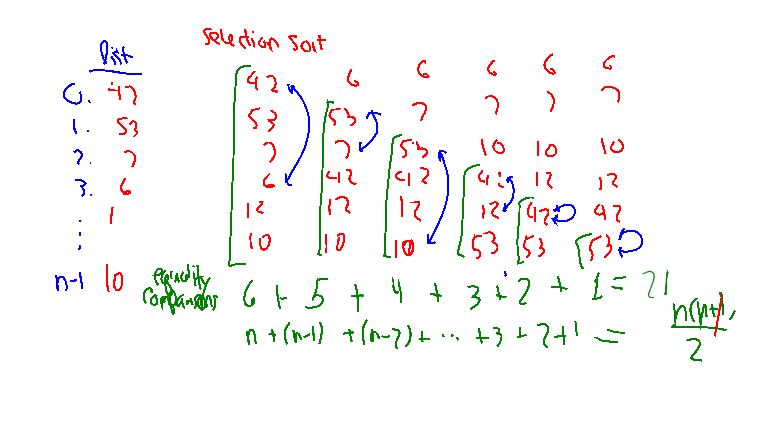 list
0. 42
1. 53
2. 7
3. 6
⋮ 1
n-1 10
Selection Sort
42 6 6 6 6 6
53 53 7 7 7 7
7 7 53 10 10 10
6 42 42 42 12 12
12 12 12 12 42 42
10 10 10 53 53 53
equality comparisons
6 + 5 + 4 + 3 + 2 + 1 = 21
n + (n-1) + (n-2) + ... + 3 + 2 + 1 = n(n+1) / 2